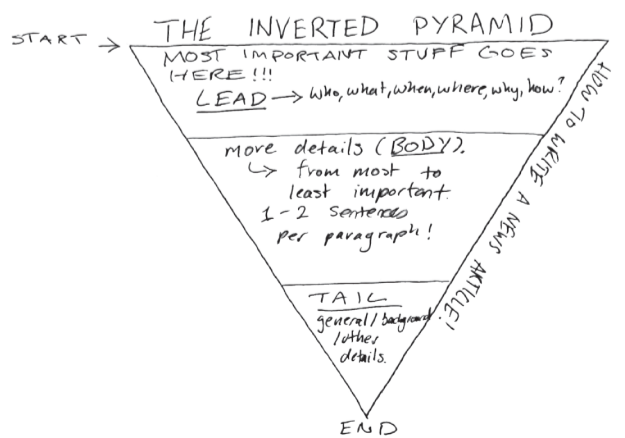 THE INVERTED PYRAMID
START →
MOST IMPORTANT STUFF GOES
HERE!!!
LEAD → who, what, when, where, why, how?
more details (BODY).
↳ from most to
least important.
1-2 sentences
per paragraph!
TAIL
general/background
/other
details.
END
HOW TO WRITE A NEWS ARTICLE!